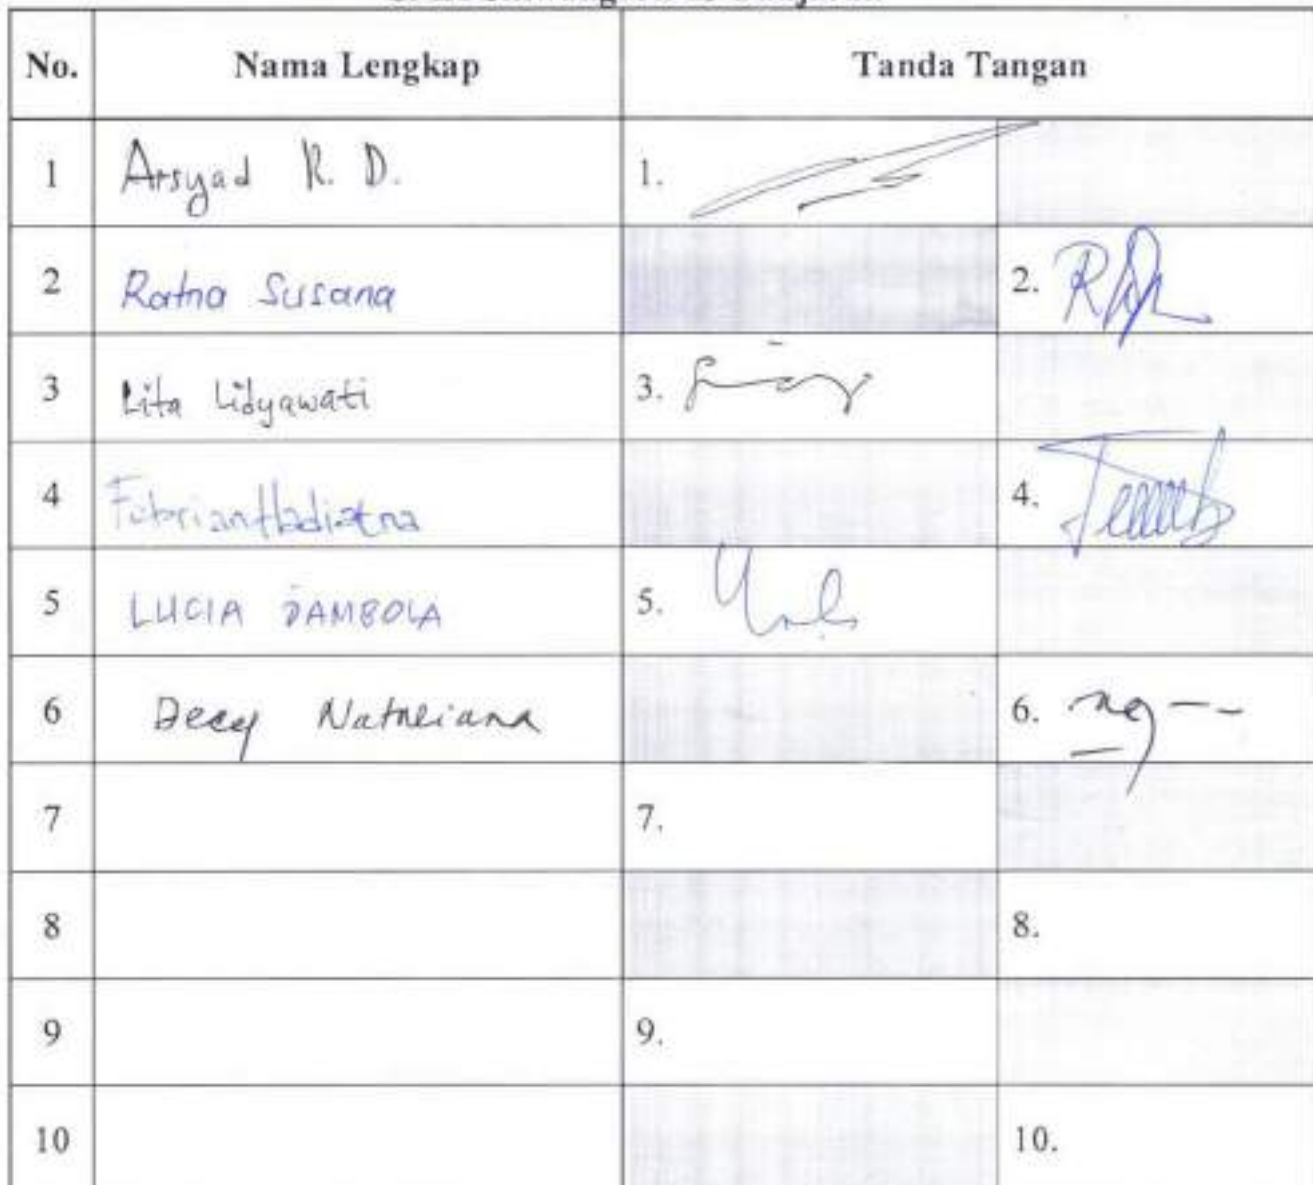 No. Nama Lengkap Tanda Tangan
1 Arsyad R. D. 1.
2 Ratna Susana 2.
3 Lita Lidyawati 3.
4 Febrian Hadiatna 4.
5 LUCIA JAMBOLA 5.
6 Decy Nataliana 6.
7 7.
8 8.
9 9.
10 10.